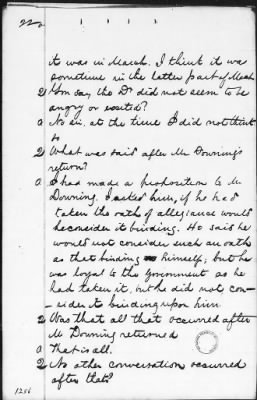 22
it was in March. I think it was
sometime in the latter part of March
Q You say the Dr did not seem to be
angry or excited?
A No sir. at the time I did not think
so
Q What was said after Mr Downing's
return?
A I had made a proposition to Mr
Downing. I asked him, if he had
taken the oath of allegiance would
he consider it binding. He said he
would not consider such an oath
as that binding himself; but he
was loyal to the Government as he
had taken it, but he did not con-
sider it binding upon him.
Q Was that all that occurred after
Mr Downing returned
A That is all.
Q No other conversation occurred
after that?
1256